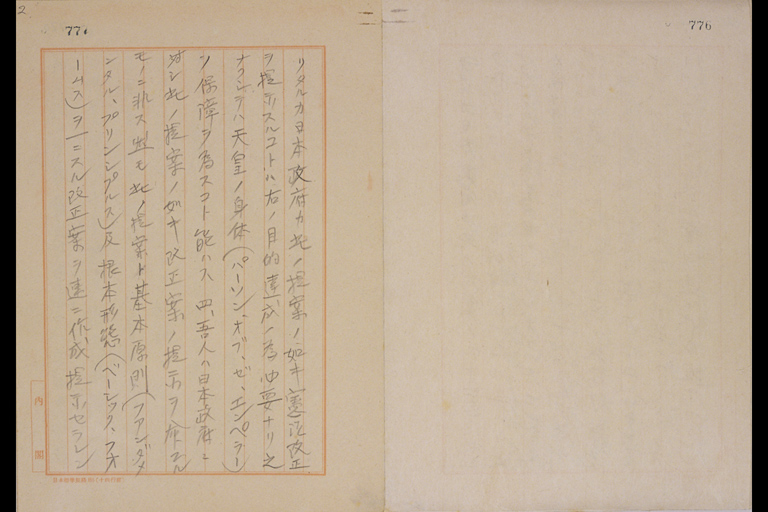 776
2
771
リタルカ日本政府カ此ノ提案ノ如キ憲法改正
ヲ提示スルコトハ右ノ目的達成ノ為必要ナリ之
ナクシテハ天皇ノ身体(パーソン、オブ、ゼ、エンペラー)
ノ保障ヲ為スコト能ハス 四、吾人ハ日本政府ニ
対シ此ノ提案ノ如キ改正案ノ提示ヲ命スル
モノニ非ス然モ此ノ提案ト基本原則(ファンダメ
ンタル、プリンシプルス)及根本形態(ベーシック、フォ
ームス)ヲ一ニスル改正案ヲ速ニ作成提示セラレン
内閣